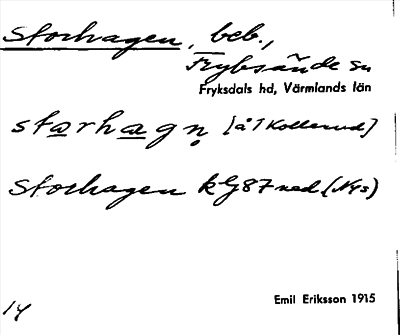 Storhagen, beb.,
Fryksände sn
Fryksdals hd, Värmlands län
starhagn [å 1 Kollerud]
Storhagen kG87 ned (Nys)
14
Emil Eriksson 1915